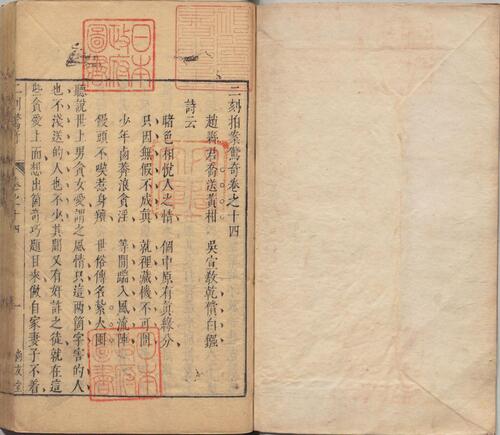 二刻拍案驚奇卷之十四
趙縣君喬送黃柑　吳宣教乾償白鏹
詩云
睹色相悅人之情　個中原有真緣分
只因無假不成真　就裡藏機不可問
少年鹵莽浪貪淫　等閒踹入風流陣
饅頭不喫惹身羶　世俗傳名紮火囤
聽說世上男貪女愛謂之風情只這兩箇字害的人
也不淺送的人也不少其間又有奸詐之徒就在這
些貪愛上面想出箇奇巧題目來做自家妻子不着
二刻驚奇
卷之十四
一
尚友堂
日本
政府
圖書
日本
政府
圖書